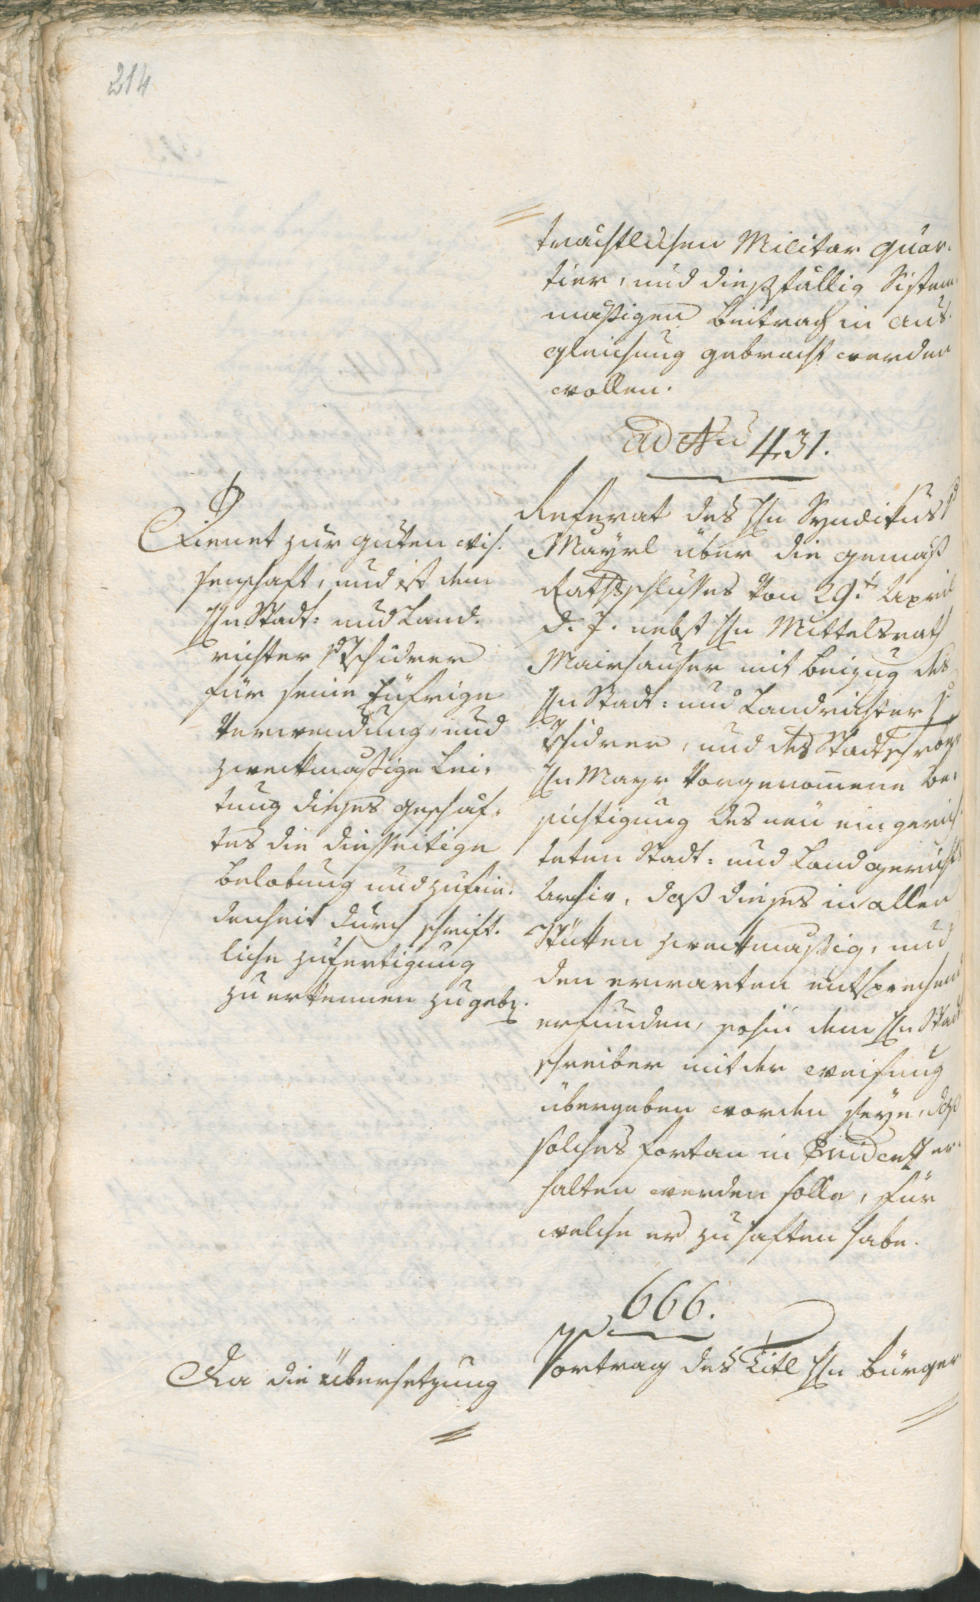 214
trächtlichen Militar Quar-
tier, und dießfällig Sistem-
mäßigen Beitrach in Aus-
gleichung gebracht werden
wollen.
ad Nu 431.
Referat des Hn Syndikus
Mayrl über die gemäß
Rathsschlusses von 29.t April
d. J. nebst Hn Mittelsrath
Mairhauser mit Beizug des
Hn Stadt: und Landrichter
Tschidrer, und des Stadtschrbr
Hn Mayr vorgenommene Be-
sichtigung des neu eingerich-
teten Stadt: und Landgerichts
Archiv, daß dieses in allen
Stücken zweckmäßig, und
den erwarten entsprechend
erfunden, sohin dem Hn Stadt
schreiber mit der Weisung
übergeben worden seye, daß
solches fortan in Evidenz er-
halten werden solle, für
welche er zu haften habe.
Dienet zur guten Wis-
senschaft, und ist dem
Hn Stadt: und Land-
richter Tschidrer
für seine Eüfrige
Verwendung, und
zweckmäßige Lei-
tung dieses Geschäf-
tes die diesseitige
Belobung und Zufrie-
denheit durch schrift-
liche Zufertigung
zu erkennen zu geben.
666.
Vortrag des Titl Hn Bürger
Da die Übersetzung